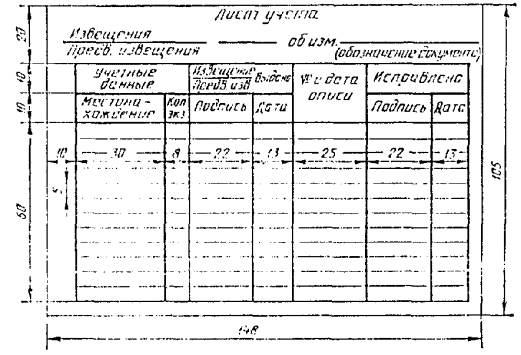 Лист учета
Извещения
Предв. извещения
об изм.
(обозначение документа)
Учетные данные
Извещение
Предв. изв
Выдано
№ и дата описи
Исправлено
Местона-
хождение
Кол
экз
Подпись
Дата
Подпись
Дата
20
10
10
60
10
30
8
22
13
25
22
13
5
105
148